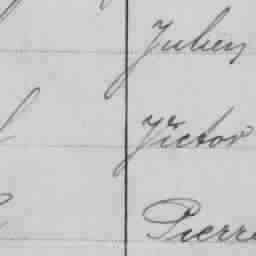 Julien
Victor
Pierre